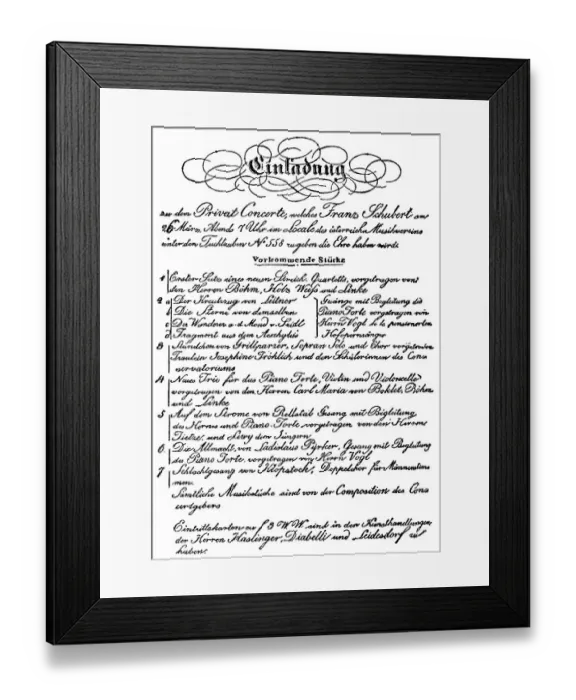 Einladung
zu dem Privat Concerte, welches Franz Schubert am
26 März, Abends 7 Uhr im Locale des österreich. Musikvereins
unter den Tuchlauben No 558 zu geben die Ehre haben wird.
Vorkommende Stücke
1 Erster Satz eines neuen Streich Quartetts, vorgetragen von
den Herren Böhm, Holz, Weiss und Linke
2 a Der Kreutzzug von Leitner
b Die Sterne von demselben
c Der Wanderer a. d. Mond v. Seidl
d Fragment aus dem Aeschylus
Gesänge mit Begleitung des
Piano Forte vorgetragen von
Herrn Vogl k. k. pensionirten
Hofopernsänger
3 Ständchen von Grillparzer, Sopran Solo und Chor vorgetragen
Fräulein Josephine Fröhlich und den Schülerinnen des Cons
ervatoriums
4 Neues Trio für das Piano Forte, Violin und Violoncelle
vorgetragen von den Herren Carl Maria von Boklet, Böhm
und Linke
5 Auf dem Strome von Rellstab Gesang mit Begleitung
des Horns und Piano Forte vorgetragen von den Herren
Tietze, und Lewy dem Jüngern
6. Die Allmacht, von Ladislaus Pyrker, Gesang mit Begleitung
des Piano Forte, vorgetragen von Herrn Vogl
7 Schlachtgesang von Klopstock, Doppelchor für Männerstim
men.
Sämtliche Musikstücke sind von der Composition des Con
certgebers
Eintrittskarten zu f 3 W. W. sind in den Kunsthandlungen
der Herren Haslinger, Diabelli und Leidesdorf zu
haben.